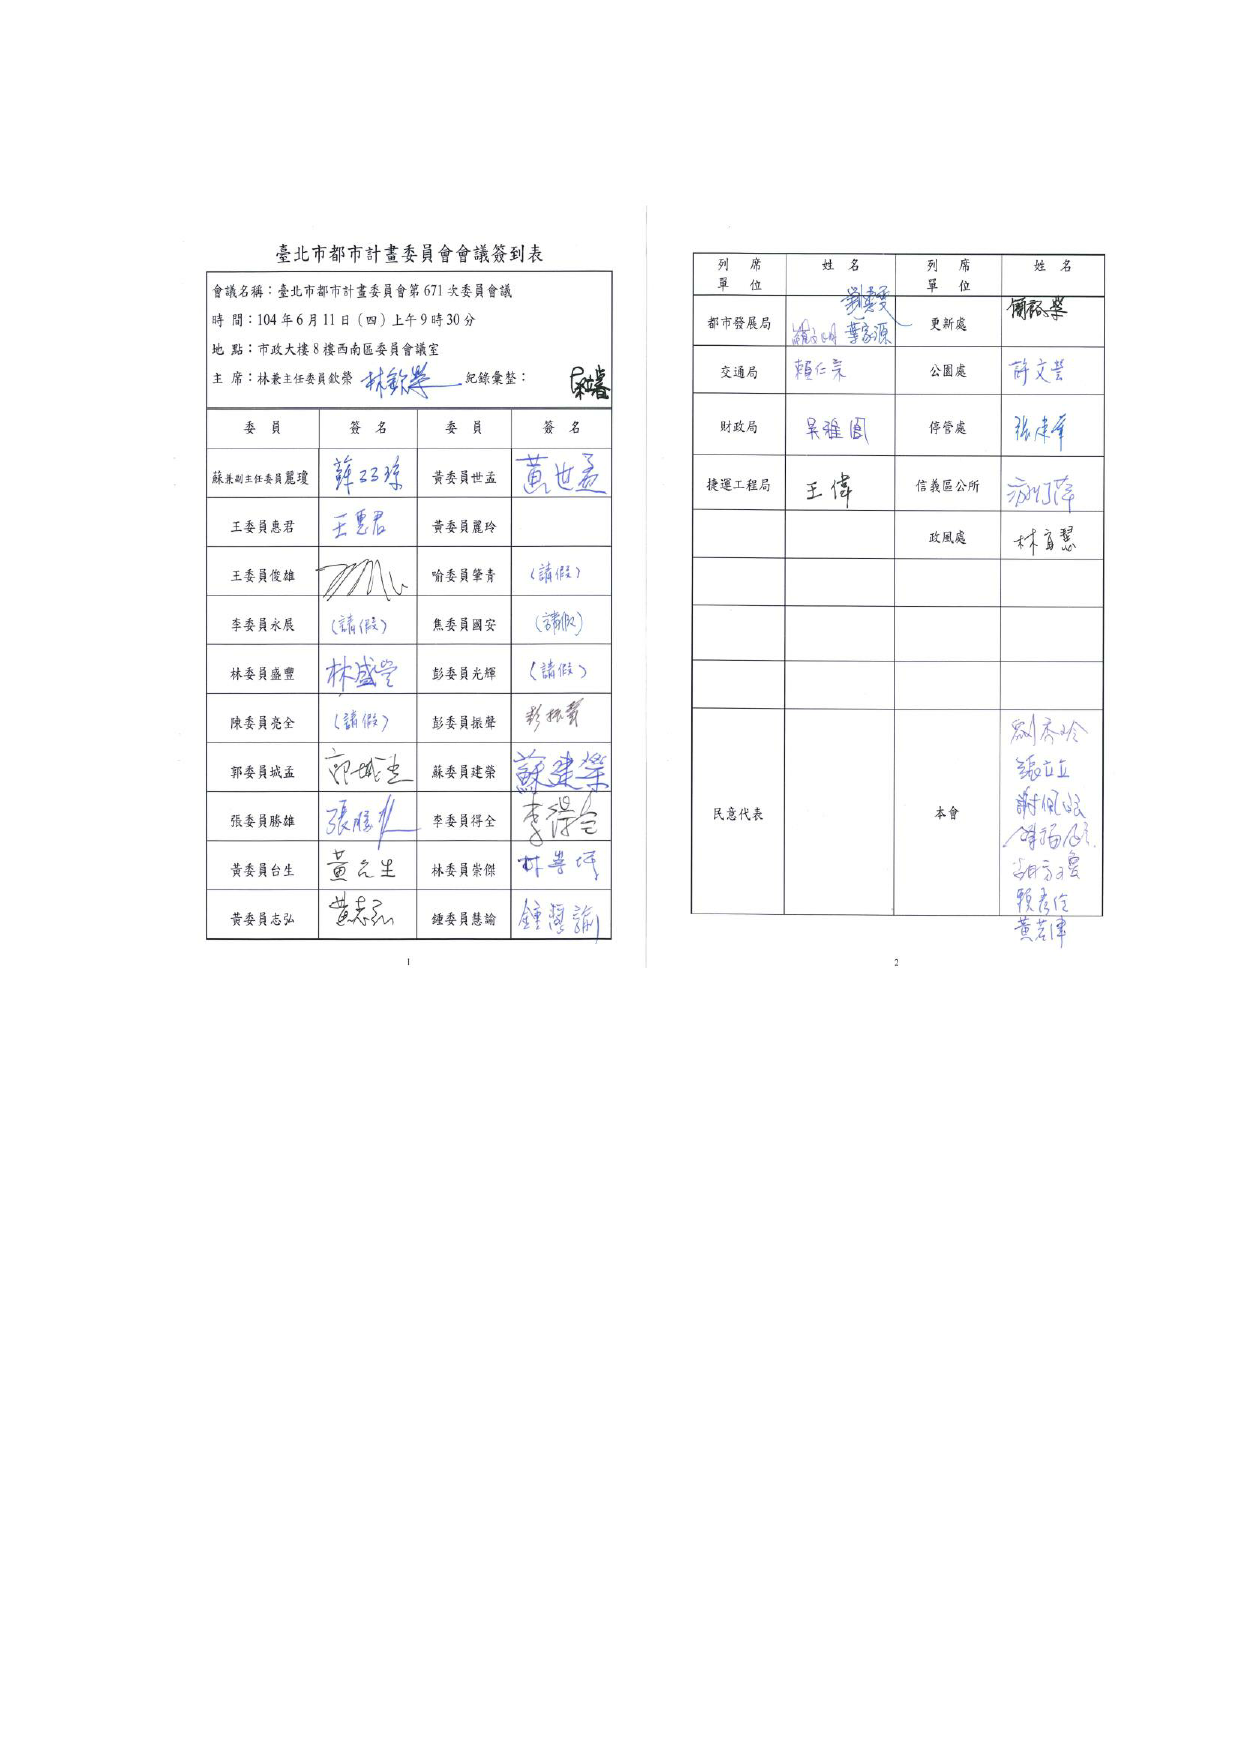 臺北市都市計畫委員會會議簽到表
會議名稱：臺北市都市計畫委員會第 671 次委員會議
時 間：104 年 6 月 11 日（四）上午 9 時 30 分
地 點：市政大樓 8 樓西南區委員會議室
主 席：林兼主任委員欽榮 林欽榮 紀錄彙整：
委 員 簽 名 委 員 簽 名
蘇兼副主任委員麗瓊 黃委員世孟 黃世孟
王委員惠君 王惠君 黃委員麗玲
王委員俊雄 喻委員肇青 （請假）
李委員永展 （請假） 焦委員國安 （請假）
林委員盛豐 林盛豐 彭委員光輝 （請假）
陳委員亮全 （請假） 彭委員振聲 彭振聲
郭委員城孟 郭城孟 蘇委員建榮 蘇建榮
張委員勝雄 張勝雄 李委員得全 李得全
黃委員台生 黃台生 林委員崇傑 林崇傑
黃委員志弘 黃志弘 鍾委員慧諭 鍾慧諭
1
列 席 單 位 姓 名 列 席 單 位 姓 名
都市發展局 劉惠雯 葉家源 更新處 簡裕榮
交通局 賴仁宗 公園處 許文芸
財政局 吳雅圓 停管處 張建華
捷運工程局 王偉 信義區公所
政風處 林育慧
民意代表 本會 劉秀玲
張立立
謝佩砡
胡方瓊
賴彥伶
黃若津
2